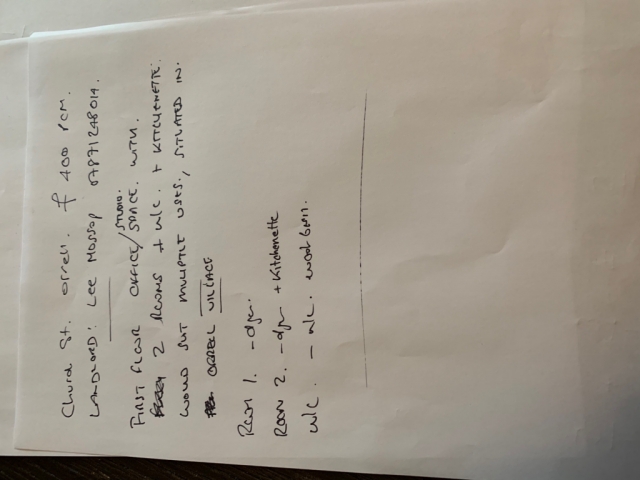 Church St. Orrell. £ 400 PCM.
LANDLORD: LEE MOSSOP 07871248014.
FIRST FLOOR OFFICE/SPACE. WITH
STUDIO.
2 ROOMS + W/C. + KITCHENETTE.
WOULD SUIT MULTIPLE USES, SITUATED IN.
ORRELL VILLAGE
ROOM 1. -
ROOM 2. - + Kitchenette
W/C. - W/C.